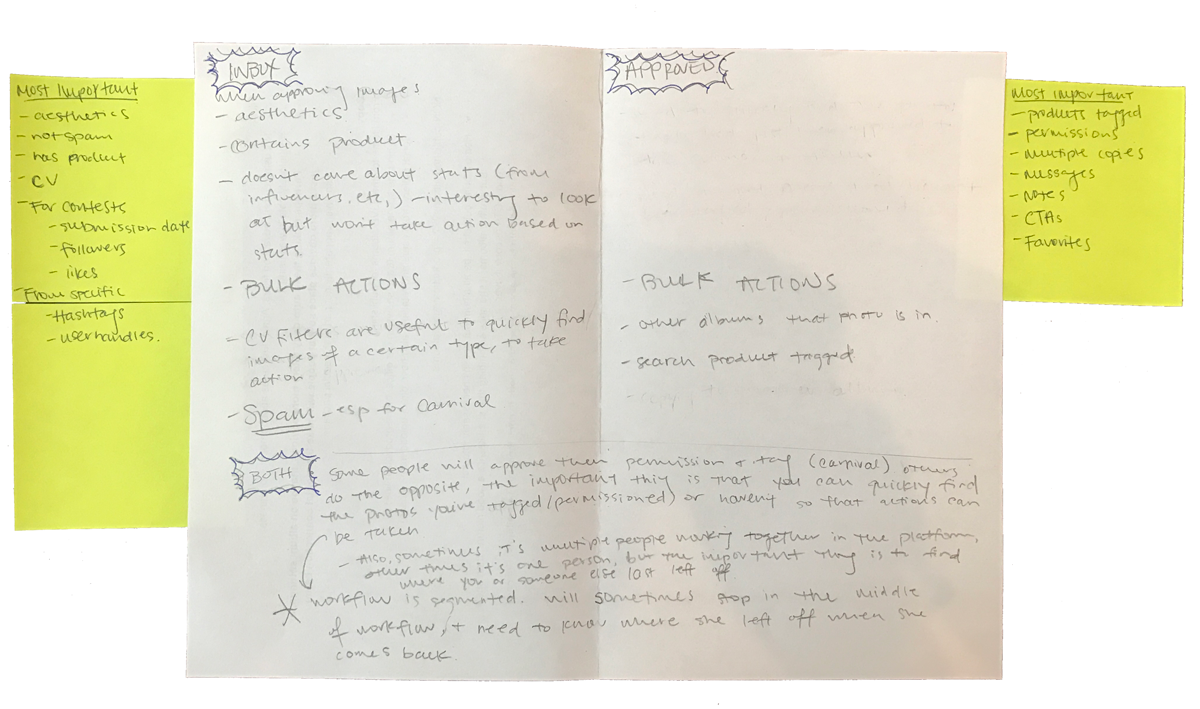 Most Important
- aesthetics
- not spam
- has product
- CV
- For contests
- submission date
- followers
- likes
- From specific
- Hashtags
- user handles.
INBOX
when approving images
- aesthetics
- contains product
- doesn't care about stats (from
influencers, etc,) - interesting to look
at but won't take action based on
stats.
- BULK ACTIONS
- CV Filters are useful to quickly find
images of a certain type, to take
action
- Spam - esp for Carnival
APPROVED
- BULK ACTIONS
- other albums that photo is in.
- search product tagged
Most important
- products tagged
- permissions
- multiple copies
- messages
- Notes
- CTAs
- Favorites
BOTH
Some people will approve then permission + tag (carnival) others
do the opposite, the important thing is that you can quickly find
the photos you've tagged/permissioned) or haven't so that actions can
be taken
- Also, sometimes it's multiple people working together in the platform,
other times it's one person, but the important thing is to find
where you or someone else last left off
* workflow is segmented. will sometimes stop in the middle
of workflow, + need to know where she left off when she
comes back.